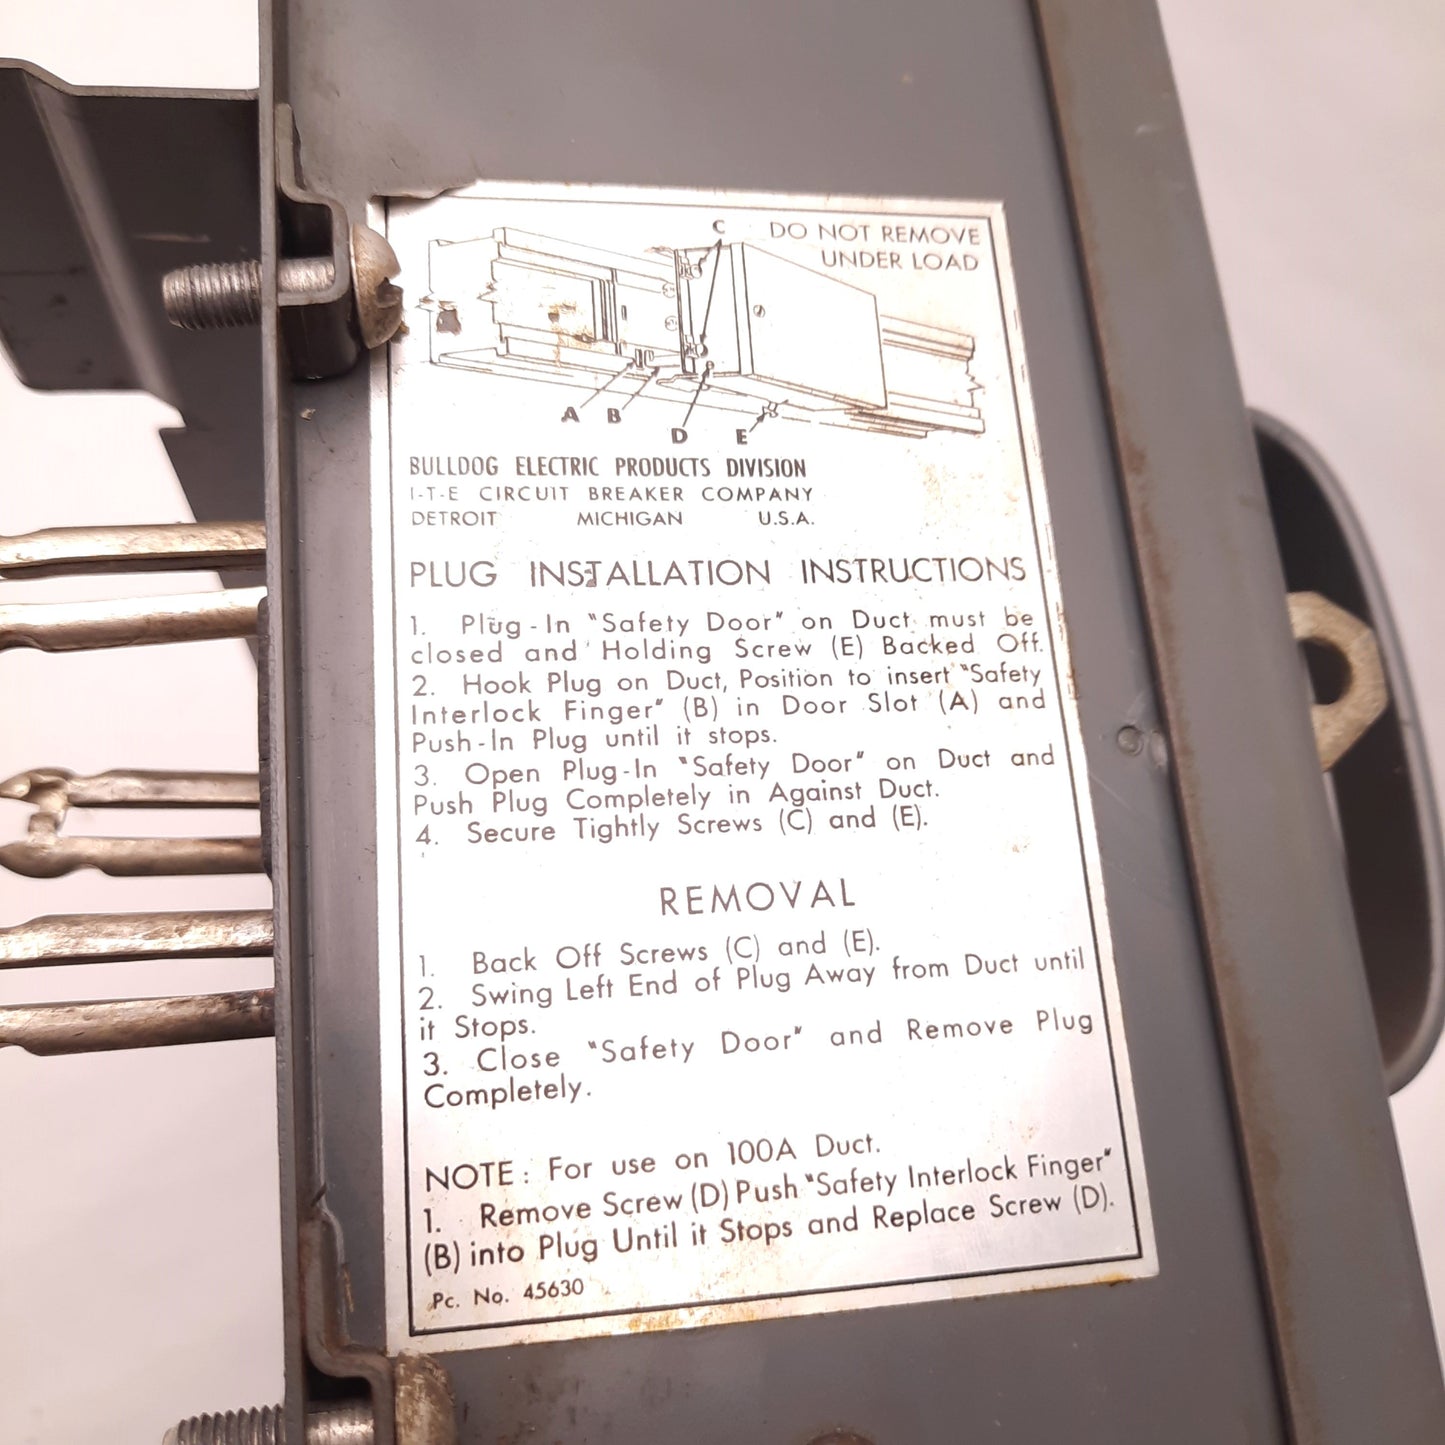 C DO NOT REMOVE
UNDER LOAD
A B
D E
BULLDOG ELECTRIC PRODUCTS DIVISION
I-T-E CIRCUIT BREAKER COMPANY
DETROIT MICHIGAN U.S.A.
PLUG INSTALLATION INSTRUCTIONS
1. Plug-In "Safety Door" on Duct must be
closed and Holding Screw (E) Backed Off.
2. Hook Plug on Duct, Position to insert "Safety
Interlock Finger" (B) in Door Slot (A) and
Push-In Plug until it stops.
3. Open Plug-In "Safety Door" on Duct and
Push Plug Completely in Against Duct.
4. Secure Tightly Screws (C) and (E).
REMOVAL
1. Back Off Screws (C) and (E).
2. Swing Left End of Plug Away from Duct until
it Stops.
3. Close "Safety Door" and Remove Plug
Completely.
NOTE: For use on 100A Duct.
1. Remove Screw (D) Push "Safety Interlock Finger"
(B) into Plug Until it Stops and Replace Screw (D).
Pc. No. 45630